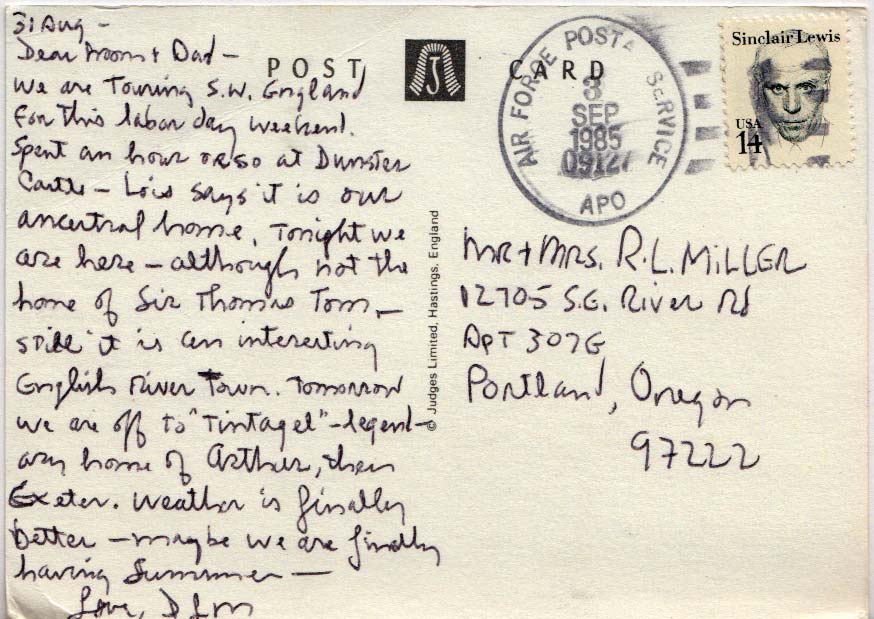 31 Aug -
Dear Mom + Dad -
We are Touring S.W. England
for this labor day weekend.
Spent an hour or so at Dunster
Castle - Lois says it is our
ancestral home. Tonight we
are here - although not the
home of Sir Thomas Tom -
still it is an interesting
English River Town. Tomorrow
we are off to "Tintagel" - legend-
ary home of Arthur, then
Exeter. Weather is finally
better - maybe we are finally
having Summer -
Love, D L M
POST CARD
J
© Judges Limited, Hastings, England
AIR FORCE POSTAL SERVICE
3
SEP
1985
09127
APO
Sinclair Lewis
USA
14
MR + MRS. R.L. MILLER
12705 S.E. River Rd
APT 307G
Portland, Oregon
97222